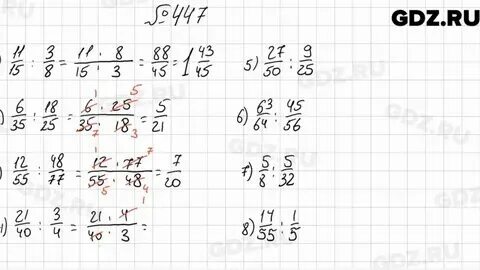 №447
GDZ.RU
) 11/15 : 3/8 = 11 · 8/15 · 3 = 88/45 = 1 43/45
5) 27/50 : 9/25
) 6/35 : 18/25 = 6 · 25/35 · 18 = 5/21
1 5 7 3
6) 63/64 : 45/56
) 12/55 : 48/77 = 12 · 77/55 · 48 = 7/20
1 7 5 4
7) 5/8 : 5/32
) 21/40 : 3/4 = 21 · 4/40 · 3 =
1
8) 14/55 : 1/5
GDZ.RU